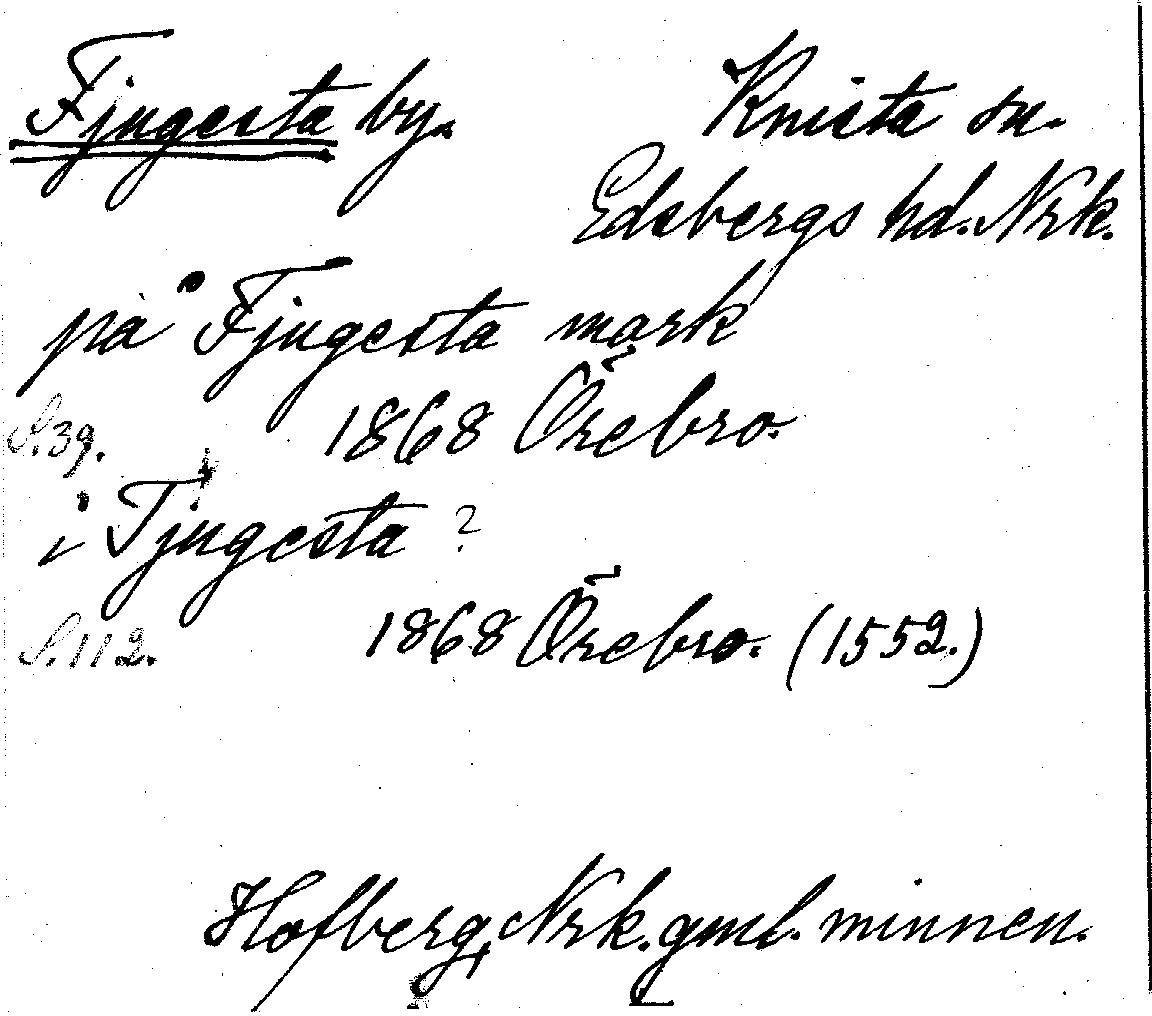 Fjugesta by. Knista sn.
Edsbergs hd. Nrk.
på Fjugesta mark
S.39. 1868 Örebro.
i Tjugesta ?
S.112. 1868 Örebro. (1552.)
Hofberg, Nrk. gml. minnen.